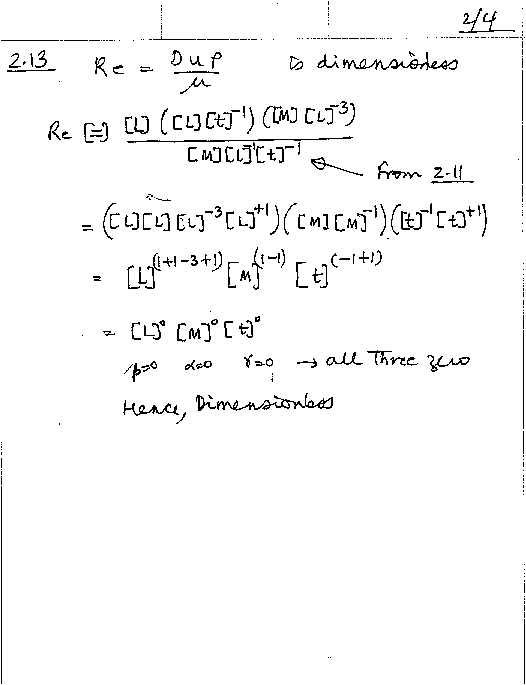 2/4
2.13 Re = Duρ/μ is dimensionless
Re [=] [L] ([L][t]⁻¹) ([M][L]⁻³) / [M][L]⁻¹[t]⁻¹
From 2.11
= ([L][L][L]⁻³[L]⁺¹)([M][M]⁻¹)([t]⁻¹[t]⁺¹)
= [L]⁽¹⁺¹⁻³⁺¹⁾ [M]⁽¹⁻¹⁾ [t]⁽⁻¹⁺¹⁾
= [L]⁰ [M]⁰ [t]⁰
β=0 α=0 γ=0 → all three zero
Hence, Dimensionless